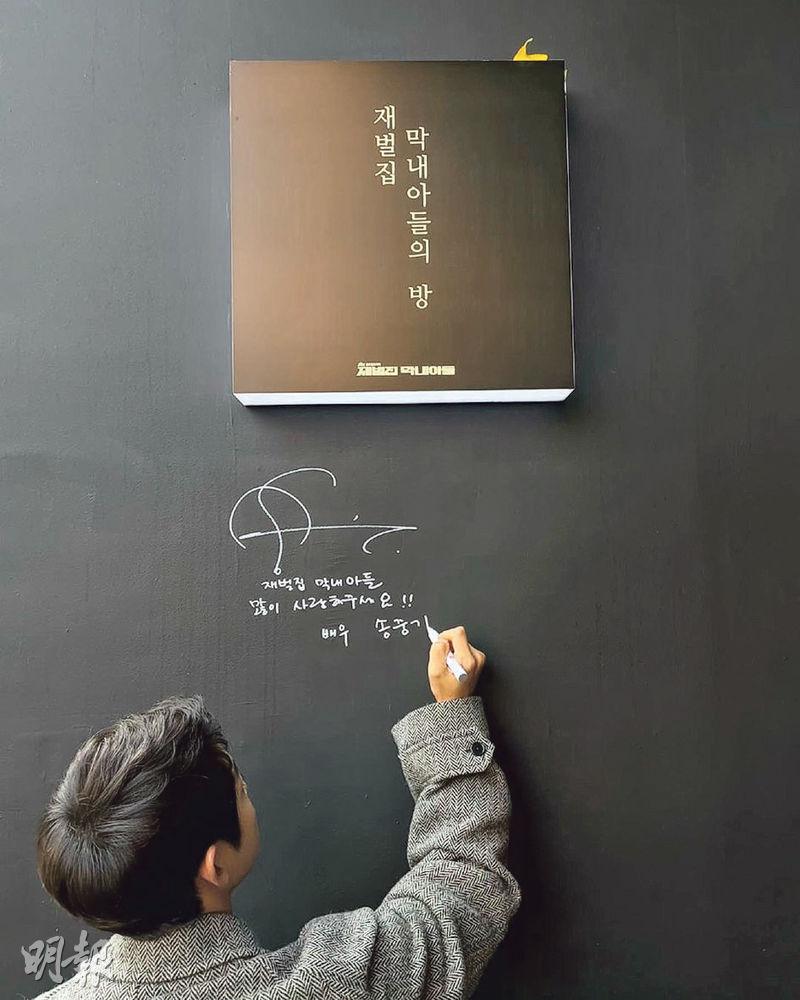 재벌집
막내아들의 방
재벌집 막내아들
재벌집 막내아들
많이 사랑해주세요!!
배우 송중기
明報